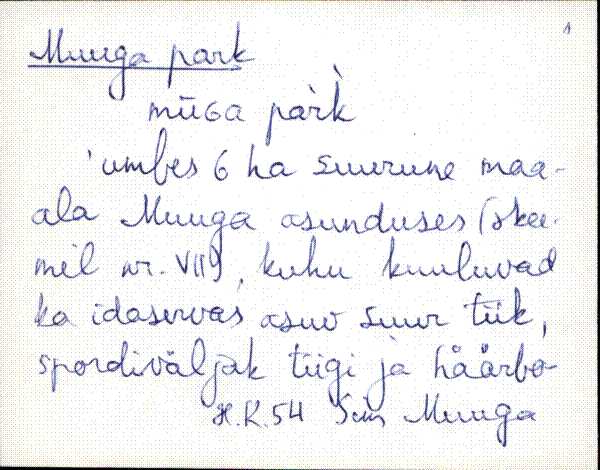 1
Muuga park
mūGa pàrk̀
'umbes 6 ha suurune maa-
ala Muuga asunduses (skee-
mil nr. VIII), kuhu kuuluvad
ka idaservas asuv suur tiik,
spordiväljak tiigi ja häärbe-
H.K. 54 Sim Muuga